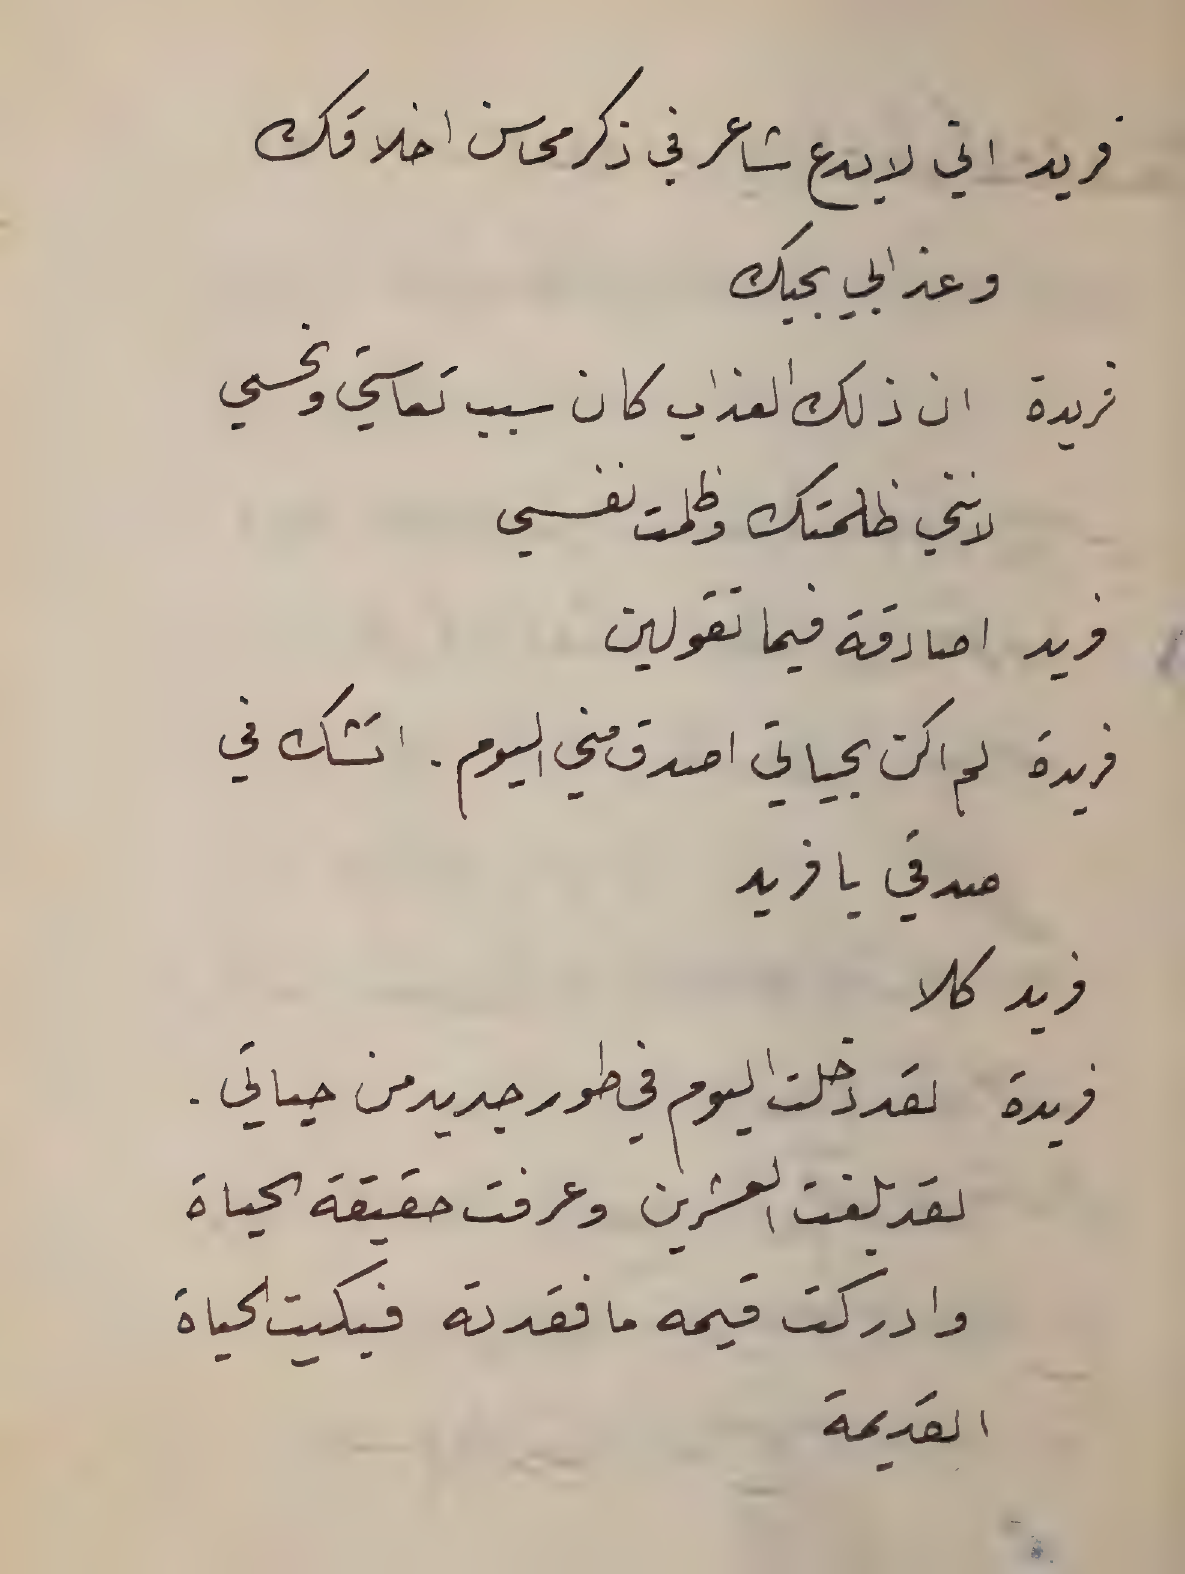 فريد اني لا بدع شاعر في ذكر محاسن اخلاقك
وعذابي بحبك
فريدة ان ذلك العذاب كان سبب تعاستي ونحسي
لانني ظلمتك وظلمت نفسي
فريد اصادقة فيما تقولين
فريدة لم اكن بحياتي اصدق مني اليوم . اتشك في
صدقي يا فريد
فريد كلا
فريدة لقد دخلت اليوم في طور جديد من حياتي .
لقد بلغت العشرين وعرفت حقيقة الحياة
وادركت قيمه ما فقدته فبكيت الحياة
القديمة